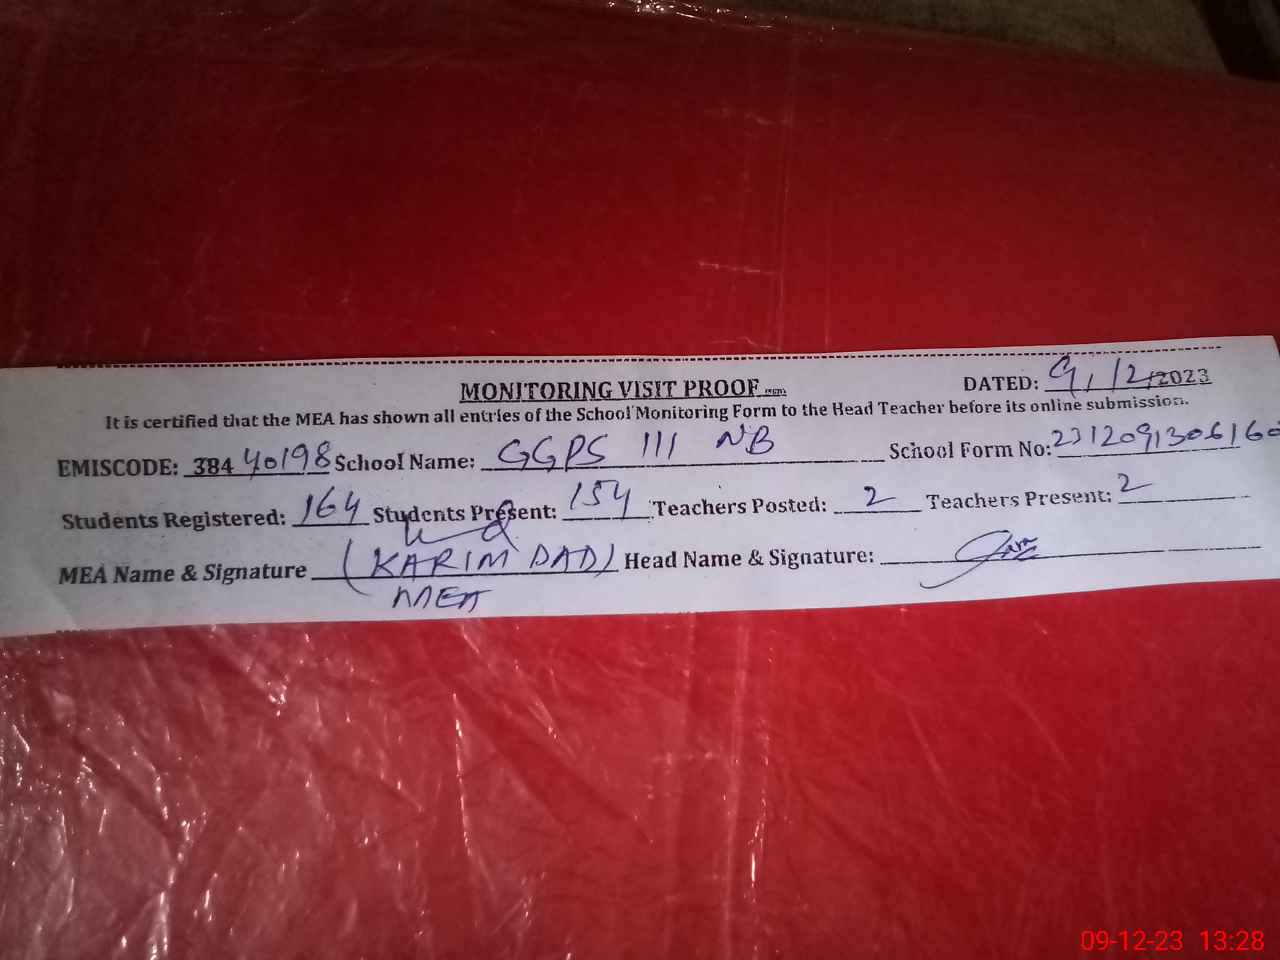 MONITORING VISIT PROOF
DATED: 9, 12, 2023
It is certified that the MEA has shown all entries of the School Monitoring Form to the Head Teacher before its online submission.
EMISCODE: 38440198 School Name: GGPS 111 NB School Form No: 2312091306160
Students Registered: 164 Students Present: 154 Teachers Posted: 2 Teachers Present: 2
MEA Name & Signature (KARIM DAD) Head Name & Signature:
MEA
09-12-23 13:28